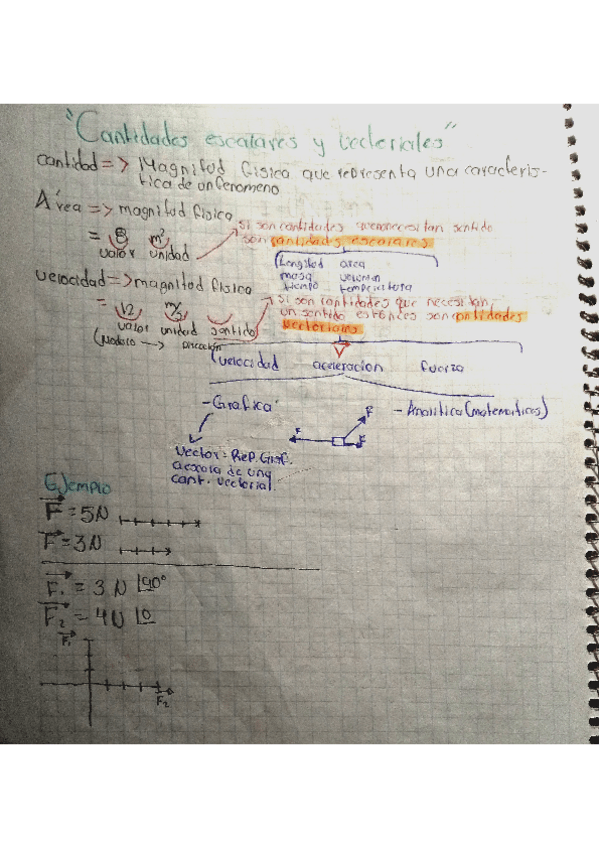 "Cantidades escalares y vectoriales"
cantidad => Magnitud fisica que representa una caracteris-
tica de un fenomeno
Área => magnitud fisica
= 8 m²
valor unidad
si son cantidades que no necesitan sentido
son cantidades escalares
Longitud area
masa volumen
tiempo temperatura
velocidad => magnitud fisica
= 12 m/s
valor unidad sentido
(Modulo → Direccion
si son cantidades que necesitan
un sentido entonces son cantidades
vectoriales
velocidad aceleracion fuerza
- Grafica
- Analitica (matematicas)
F F F
Vector = Rep. Graf.
a escala de una
cant. vectorial
Ejemplo
F = 5N
F = 3N
F₁ = 3 N |90°
F₂ = 4N |0
F₁
F₂